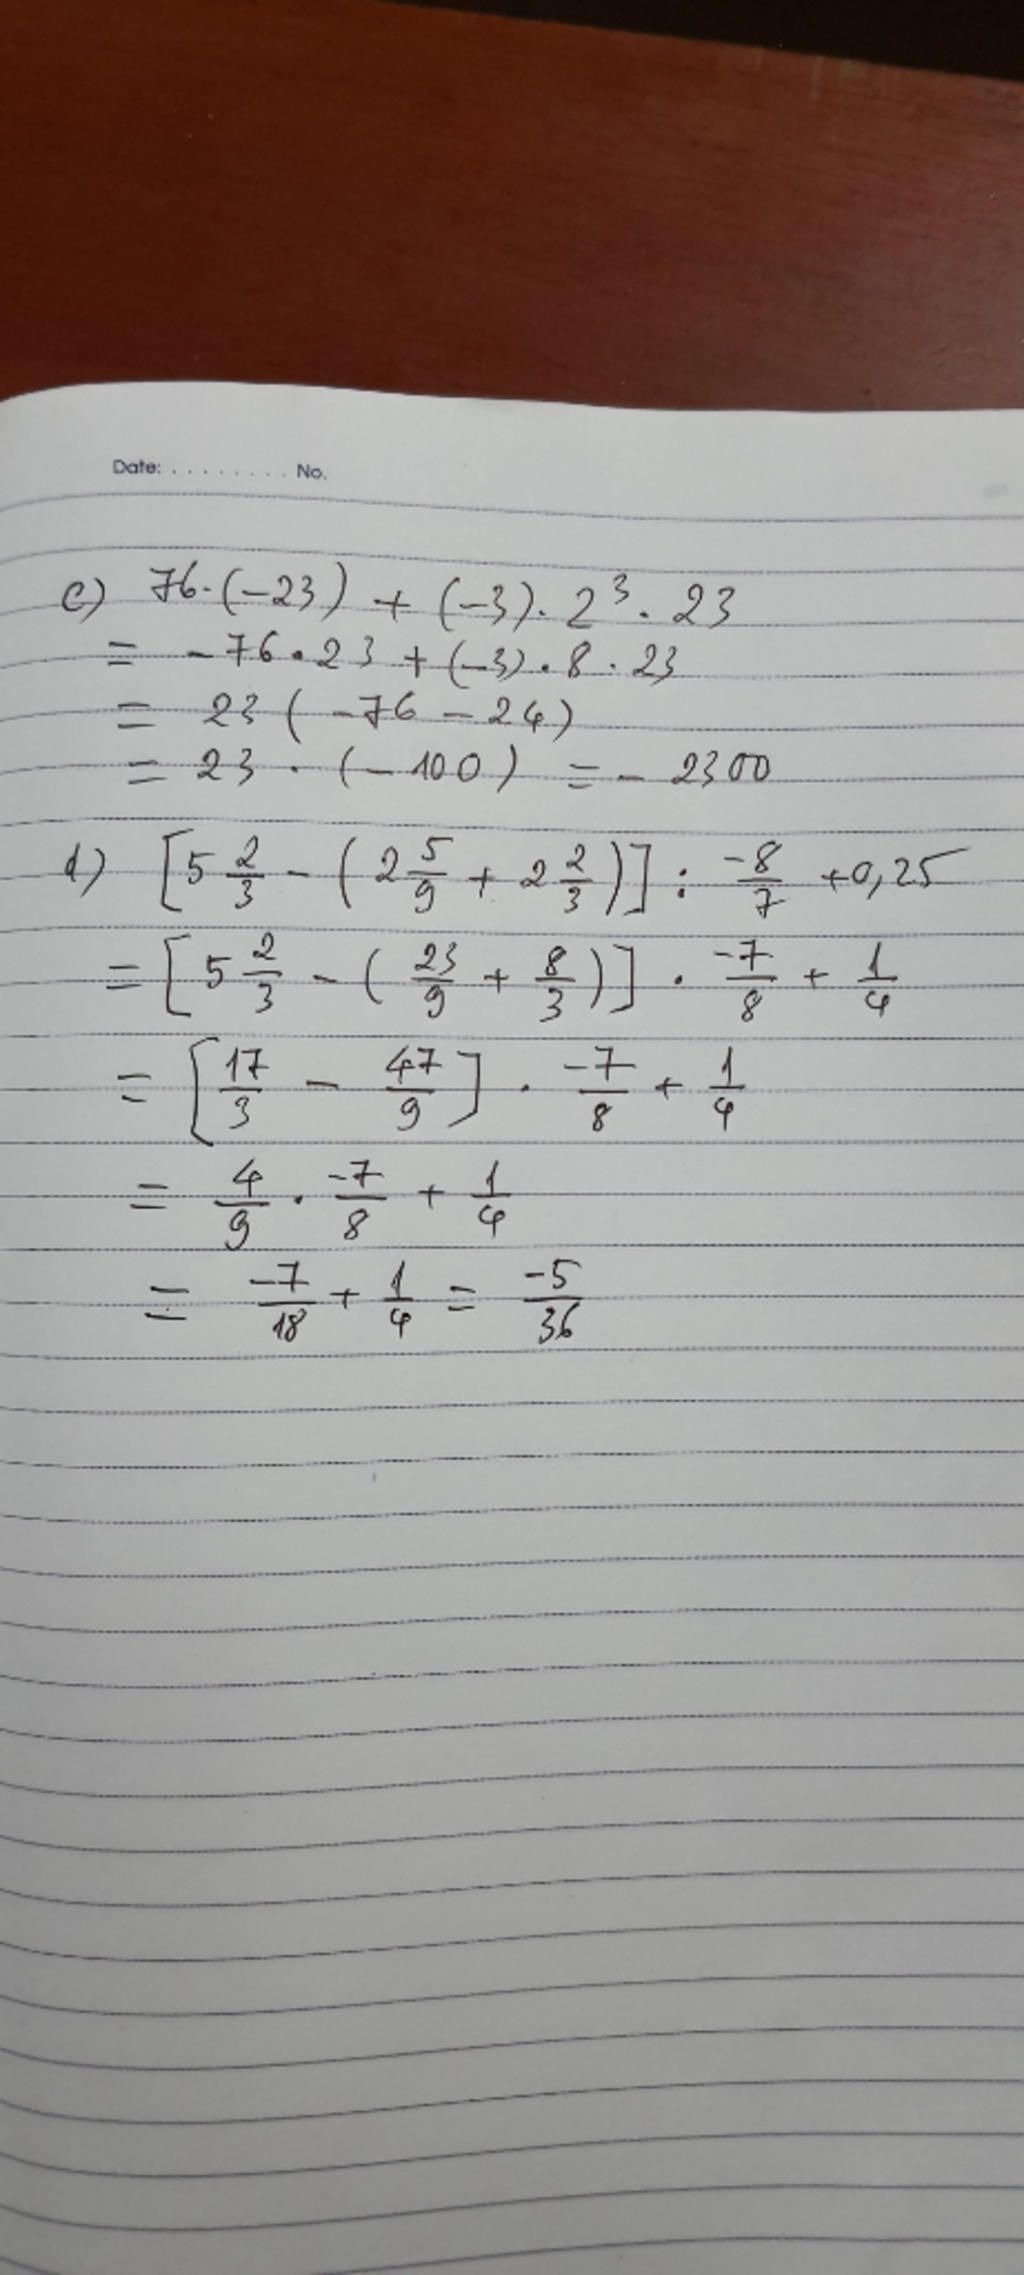 Date: . . . . . . . . No.
c) 76·(-23) + (-3)·2³·23
= -76·23 + (-3)·8·23
= 23(-76 - 24)
= 23·(-100) = -2300
d) [5 2/3 - (2 5/9 + 2 2/3)] : -8/7 + 0,25
= [5 2/3 - (23/9 + 8/3)] · -7/8 + 1/4
= [17/3 - 47/9] · -7/8 + 1/4
= 4/9 · -7/8 + 1/4
= -7/18 + 1/4 = -5/36